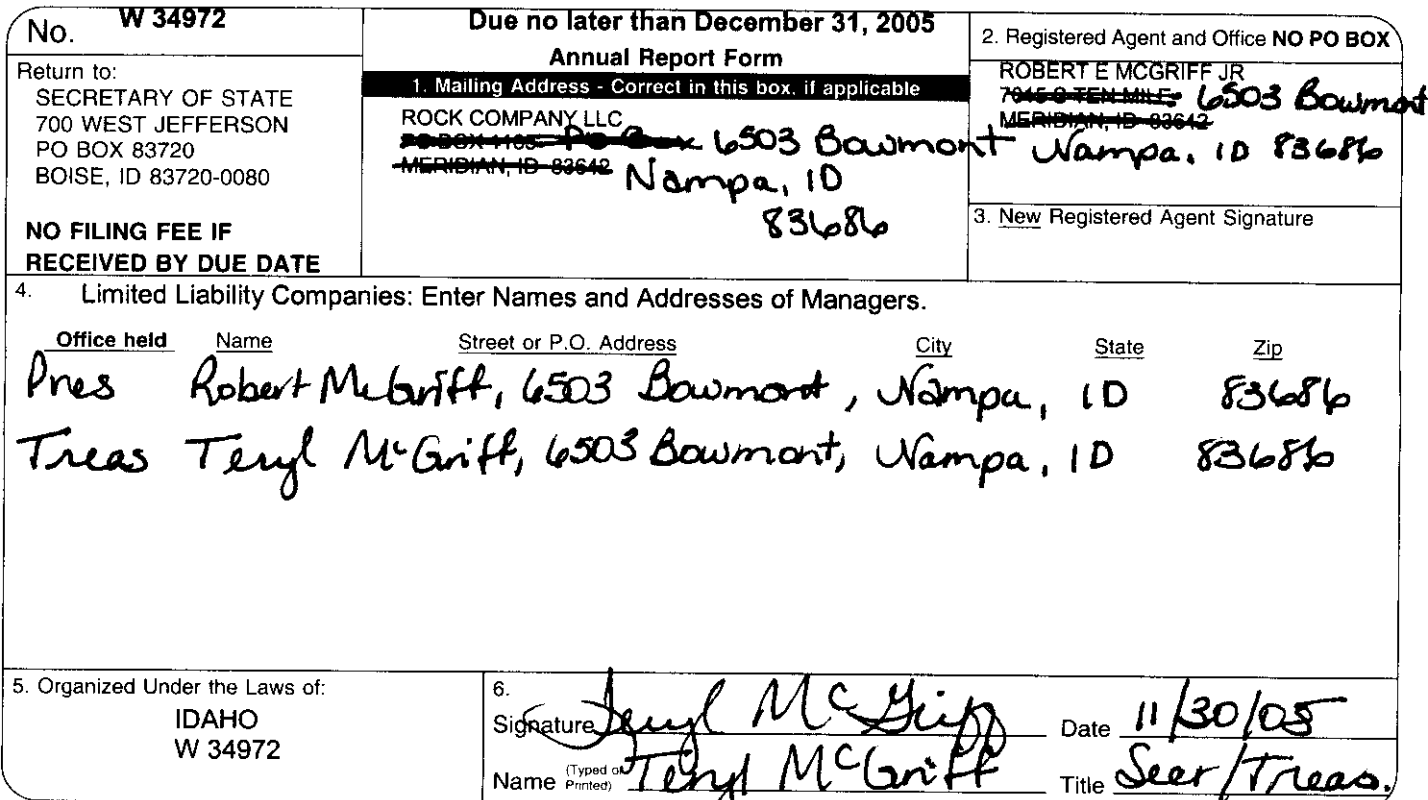 No. W 34972
Return to:
SECRETARY OF STATE
700 WEST JEFFERSON
PO BOX 83720
BOISE, ID 83720-0080
NO FILING FEE IF
RECEIVED BY DUE DATE
Due no later than December 31, 2005
Annual Report Form
1. Mailing Address - Correct in this box, if applicable
ROCK COMPANY LLC
PO BOX 1105 PO Box 6503 Bowmont
MERIDIAN, ID 83642 Nampa, ID
83686
2. Registered Agent and Office NO PO BOX
ROBERT E MCGRIFF JR
7045 S TEN MILE 6503 Bowmont
MERIDIAN, ID 83642
Nampa, ID 83686
3. New Registered Agent Signature
4. Limited Liability Companies: Enter Names and Addresses of Managers.
Office held Name Street or P.O. Address City State Zip
Pres Robert McGriff, 6503 Bowmont, Nampa, ID 83686
Treas Teryl McGriff, 6503 Bowmont, Nampa, ID 83686
5. Organized Under the Laws of:
IDAHO
W 34972
6.
Signature Teryl McGriff Date 11/30/05
Name (Typed or Printed) Teryl McGriff Title Secr/Treas.